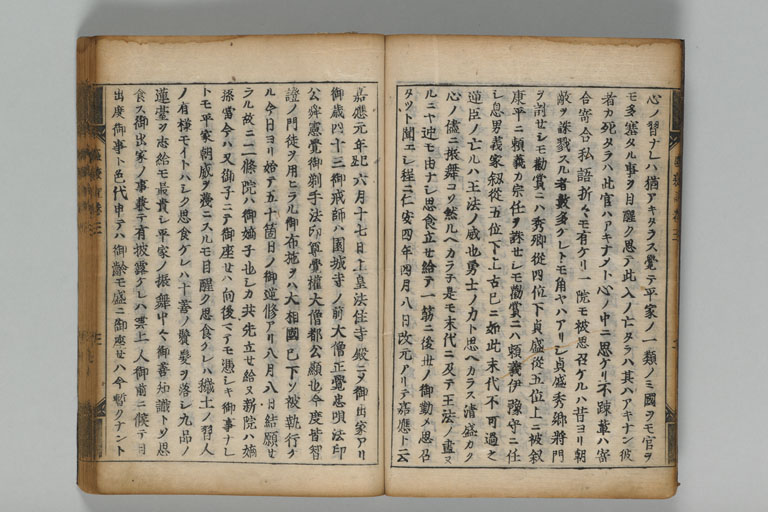 心ノ習ナレハ猶アキタラス覚テ平家ノ一類ノミ國ヲモ官ヲ
モ多塞タル事ヲ目醒ク思テ此人ノ亡タラハ其ハアキナン彼
者カ死タラハ此官ハアキナント心ノ中ニ思ケリ不疎輩ハ寄
合寄合私語折々モ有ケリ一院モ被思召ケルハ昔ヨリ朝
敵ヲ誅戮スル者數多ケレトモ角ヤハアリシ貞盛秀郷將門
ヲ討セシモ勸賞ニハ秀郷從四位下貞盛從五位上ニ被叙
康平ニ頼義カ宗任ヲ誅セシモ勸賞ニハ頼義伊豫守ニ任
シ息男義家叙從五位下上古已ニ如此末代不可過之
逆臣ノ亡ルハ王法ノ威也勇士ノ力ト思ヘカラス清盛カク
心ノ儘ニ振舞コソ然ルヘカラネ是モ末代ニ及テ王法ノ盡ヌ
ルニヤ迚モ由ナシ思食立セ給テ一筋ニ後世ノ御勤メ思召
タツト聞エシ程ニ仁安四年四月八日改元アリテ嘉應ト云
嘉應元年己丑六月十七日上皇法住寺殿ニヲ御出家アリ
御歳四十三御戒師ハ園城寺ノ前大僧正覺忠唄法印
公舜憲覺御剃手法印尊覺權大僧都公顯也今度皆智
證ノ門徒ヲ用ヒラル御布施ヲハ大相國已下ソ被執行ケ
ル今日ヨリ始テ五十箇日ノ御逆修アリ八月八日結願セ
ラル故ニ二條院ハ御嫡子也シカ共先立セ給ヌ新院ハ嫡
孫當今ハ又御子ニテ御座セハ向後マテモ憑シキ御事ナレ
トモ平家朝威ヲ蔑ニスルモ目醒ク思食ケレハ穢土ノ習人
ノ有様モイトハシク思食ケレハ十善ノ鬢髪ヲ落シ九品ノ
蓮臺ヲ志給モ最貴シ平家ノ振舞中々御善知識トソ思
食ス御出家ノ事兼テ有披露ケレハ雲上人御前ニ候テ目
出度御事ト色代申テハ御齡モ盛ニ御座セハ今暫クナント